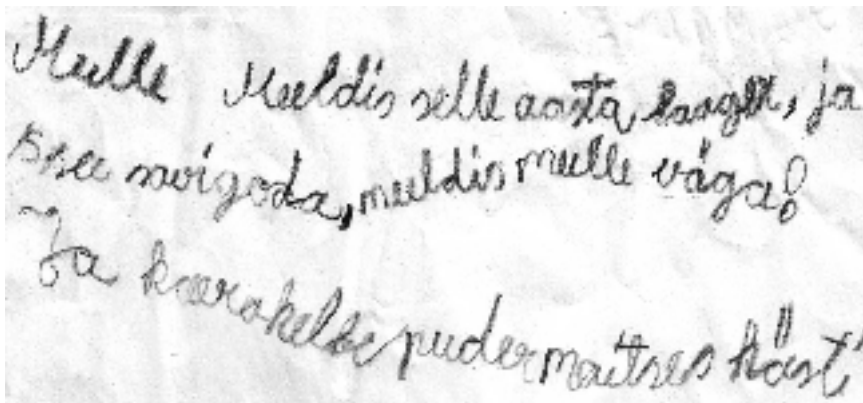 Mulle Meeldis selle aasta laager, ja
see svigoda, meeldis mulle väga!
Ja kaerahelbe puder maitses hästi